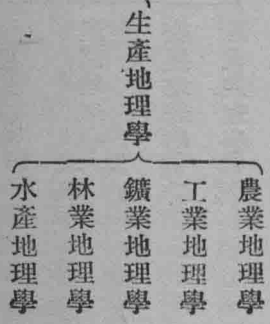 生產地理學
農業地理學
工業地理學
鑛業地理學
林業地理學
水產地理學